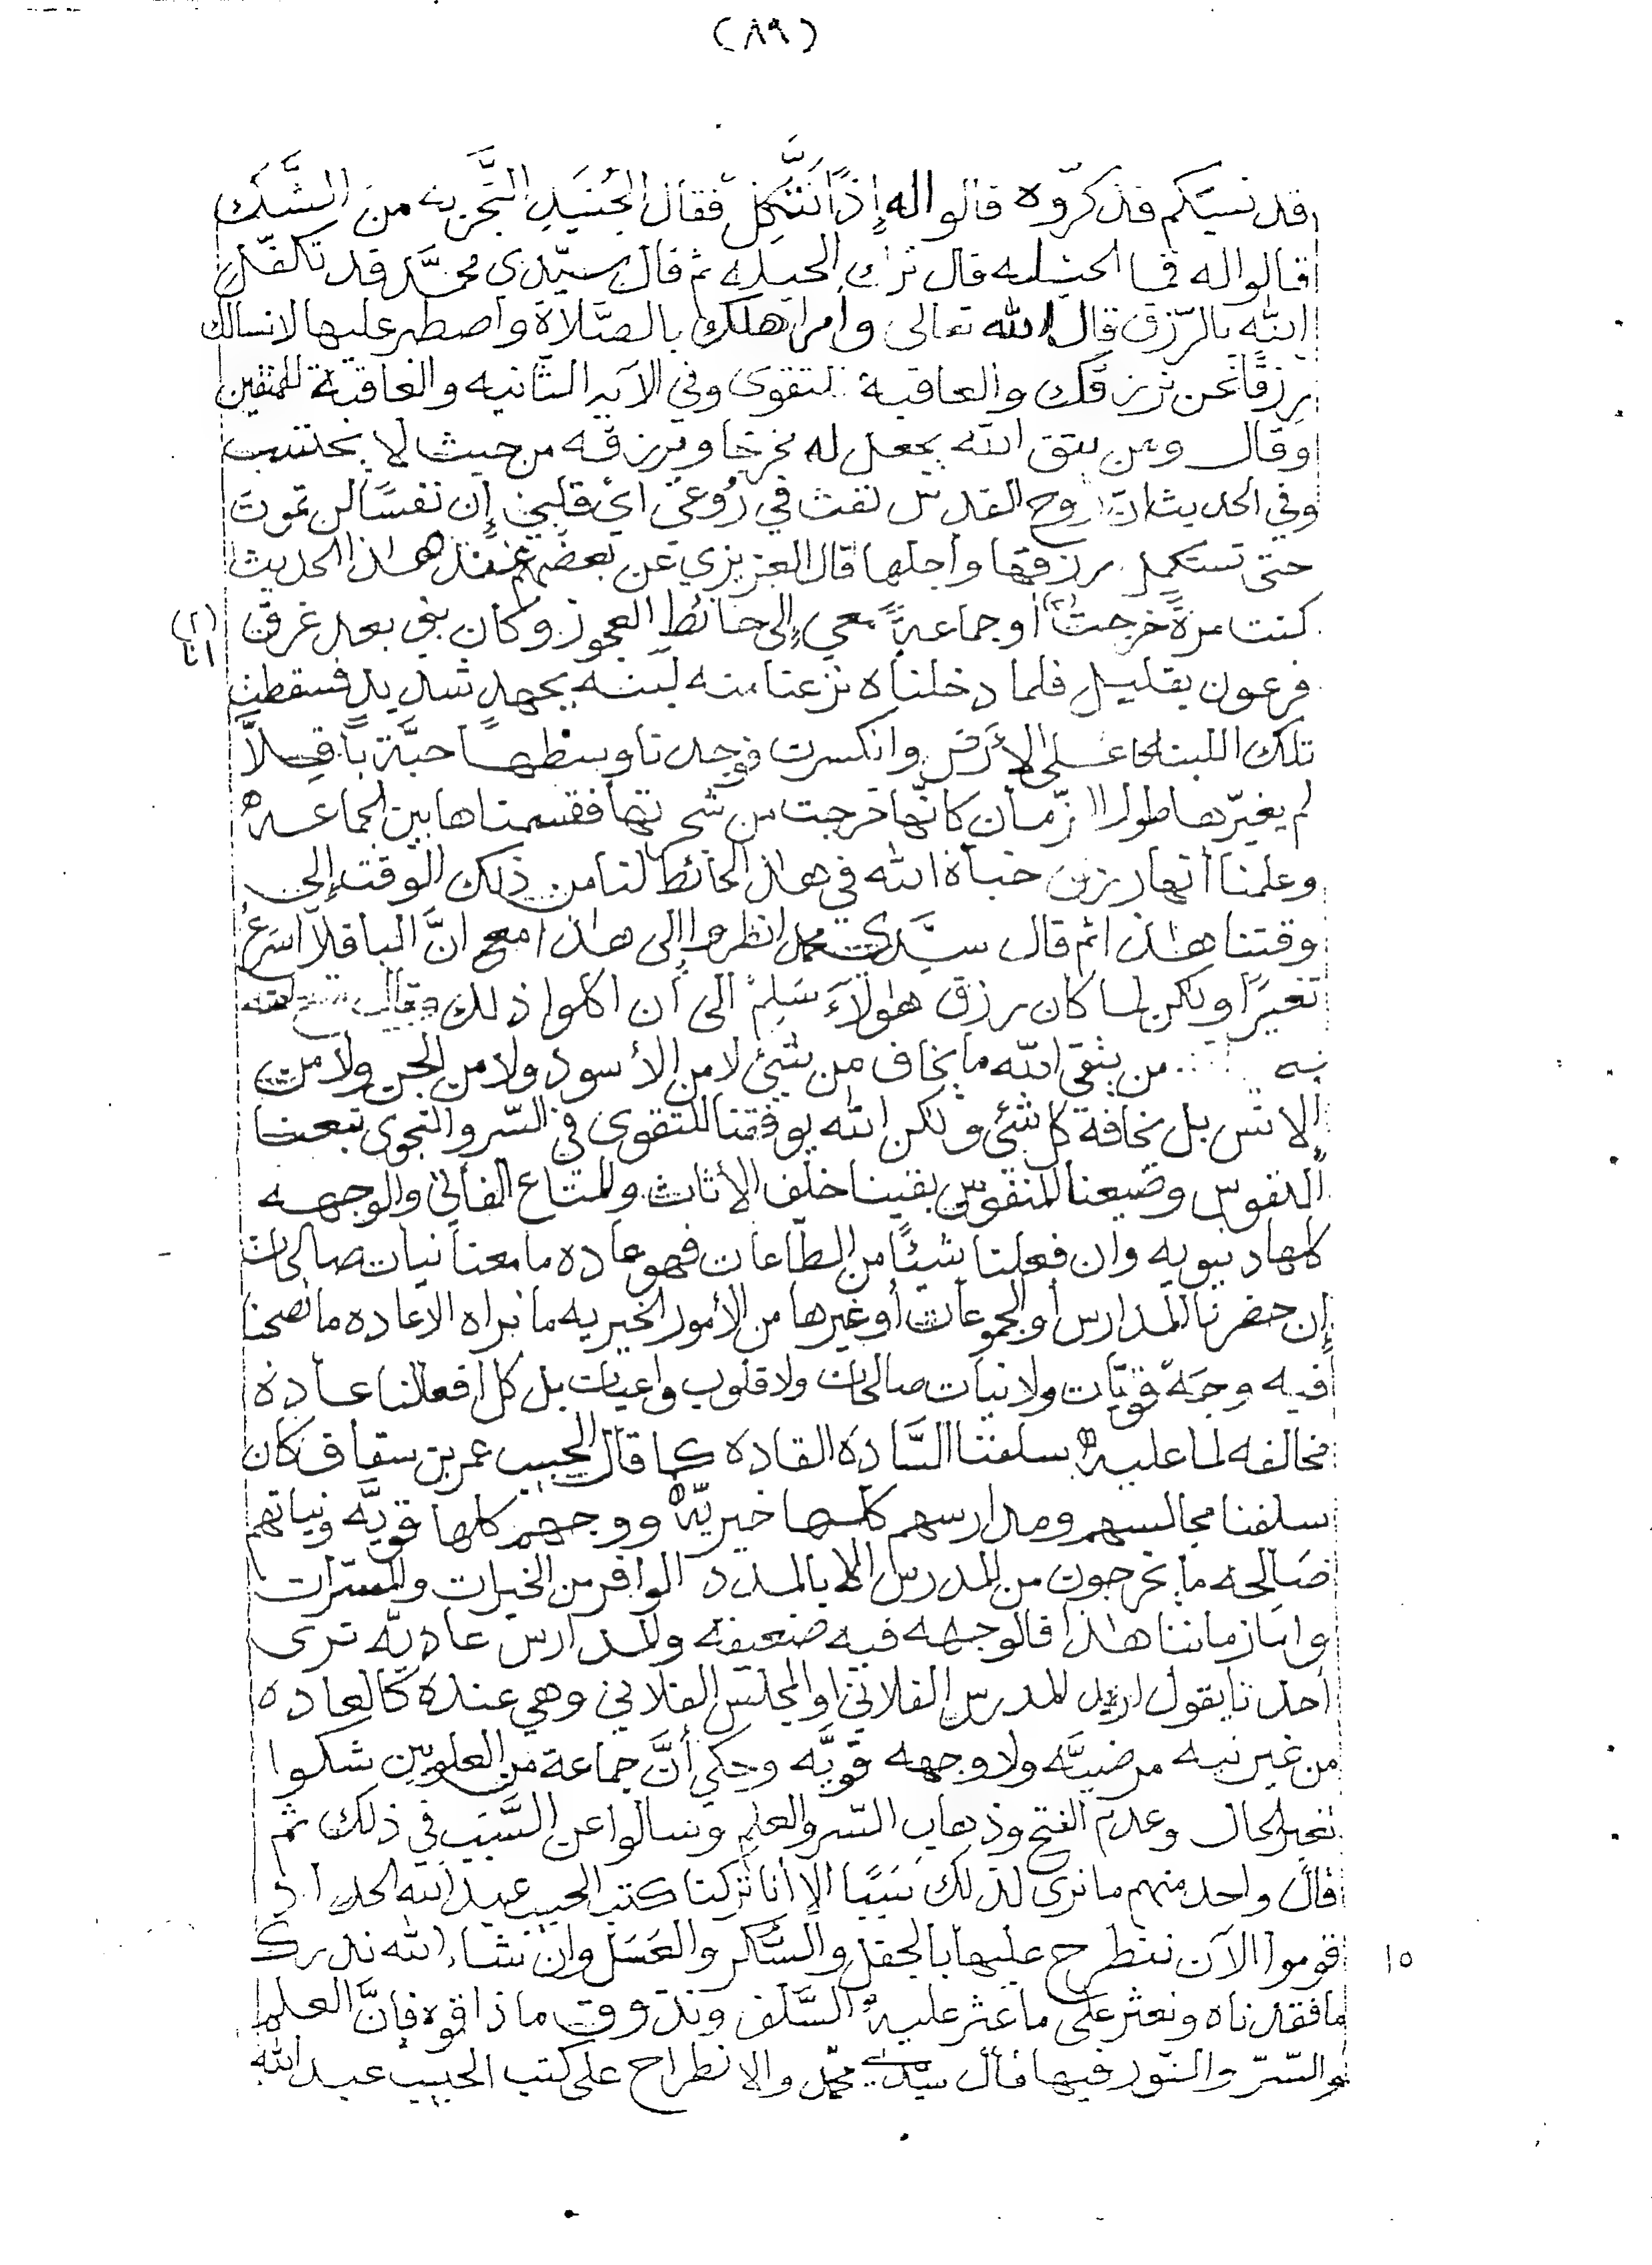 (٨٩)
قد نسيكم فذكروه قالوا له إذًا نتَّكِل فقال الجُنَيد التَّجربه من الشَّك
قالوا له فما الحيله قال ترك الحيله ثم قال سيّدي محمَّد قد تكفّل
الله بالرّزق قال الله تعالى وأمر اهلك بالصّلاة واصطبر عليها لا نسالك
رزقًا نحن نرزقك والعاقبة للتقوى وفي الآيه الثانيه والعاقبة للمتقين
وقال ومن يتق الله يجعل له مخرجا ويرزقه من حيث لا يحتسب
وفي الحديث ان روح القدس نفث في رُوعي اي قلبي إن نفسًا لن تموت
حتى تستكمل رزقها وأجلها قال العزيزي عن بعضهم عند هذا الحديث
كنت مرَّةً خرجت (٢) أو جماعةً معي إلى حائط العجوز وكان بني بعد غرق
(٢) انا
فرعون بقليل فلما دخلناه نزعنا منه لبنه بجهد شديد فسقطت
تلك اللبنه على الأرض وانكسرت فوجدنا وسطها حبَّة باقِلاَّ
لم يغيّرها طول الزّمان كانّها خرجت من شجرتها فقسمناها بين الجماعه
وعلمنا أنها رزق خبأه الله في هذا الحائط لنا من ذلك الوقت إلى
وقتنا هذا ثم قال سيّدي محمد انظروا إلى هذا مع انَّ الباقلاّ اسرع
تغيّرًا ولكن لما كان رزق هؤلاء سَلِمْ الى أن اكلوا ذلك وقال
من يتقي الله ما يخاف من شيئ لا من الأسود ولا من الجن ولا من
الانس بل يخافه كل شيئ ولكن الله يوفقنا للتقوى في السّر والنجوى تبعنا
النفوس وضيعنا المنقوس بقينا خلف الأثاث والمتاع الفاني والوجهه
كلها دنيويه وان فعلنا شيئًا من الطّاعات فهو عاده ما معنا نيات صالحات
إن حضرنا المدارس أو الجموعات أو غيرها من الأمور الخيريه ما نراه الا عاده ما نصحنا
فيه وجهَهْ قويّات ولا نيات صالحات ولا قلوب واعيات بل كل افعالنا عاده
مخالفه لما عليه سلفنا السَّاده القاده كما قال الحبيب عمر بن سقاف كان
سلفنا مجالسهم ومدارسهم كلها خيريّه ووجههم كلها قويَّه ونياتهم
صَالحه ما يخرجون من المدرس الا بالمدد الوافر من الخيرات والمسرّات
وامّا زماننا هذا فالوجهه فيه ضعيفه والمدارس عاديّه ترى
أحدنا يقول اريد المدرس الفلاني او المجلس الفلاني وهي عنده كالعاده
من غير نيه مرضيَّه ولا وجهه قويَّه وحكي أنَّ جماعة من العلويين شكوا
تغير الحال وعدم الفتح وذهاب السّر والعلم وسالوا عن السَّبَب في ذلك ثم
قال واحد منهم ما نرى لذلك سَببًا الا أنا تركنا كتب الحبيب عبد الله الحداد
قوموا الآن ننطرح عليها بالحقل والسُّكر والعَسَل وان شاء الله ندرك
١٥
ما فقدناه ونعثر على ما عثر عليه السَّلف ونذوق ما ذاقوه فإنَّ العلم
والسّرّ والنّور فيها قال سيّدي محمّد والانطراح على كتب الحبيب عبد الله